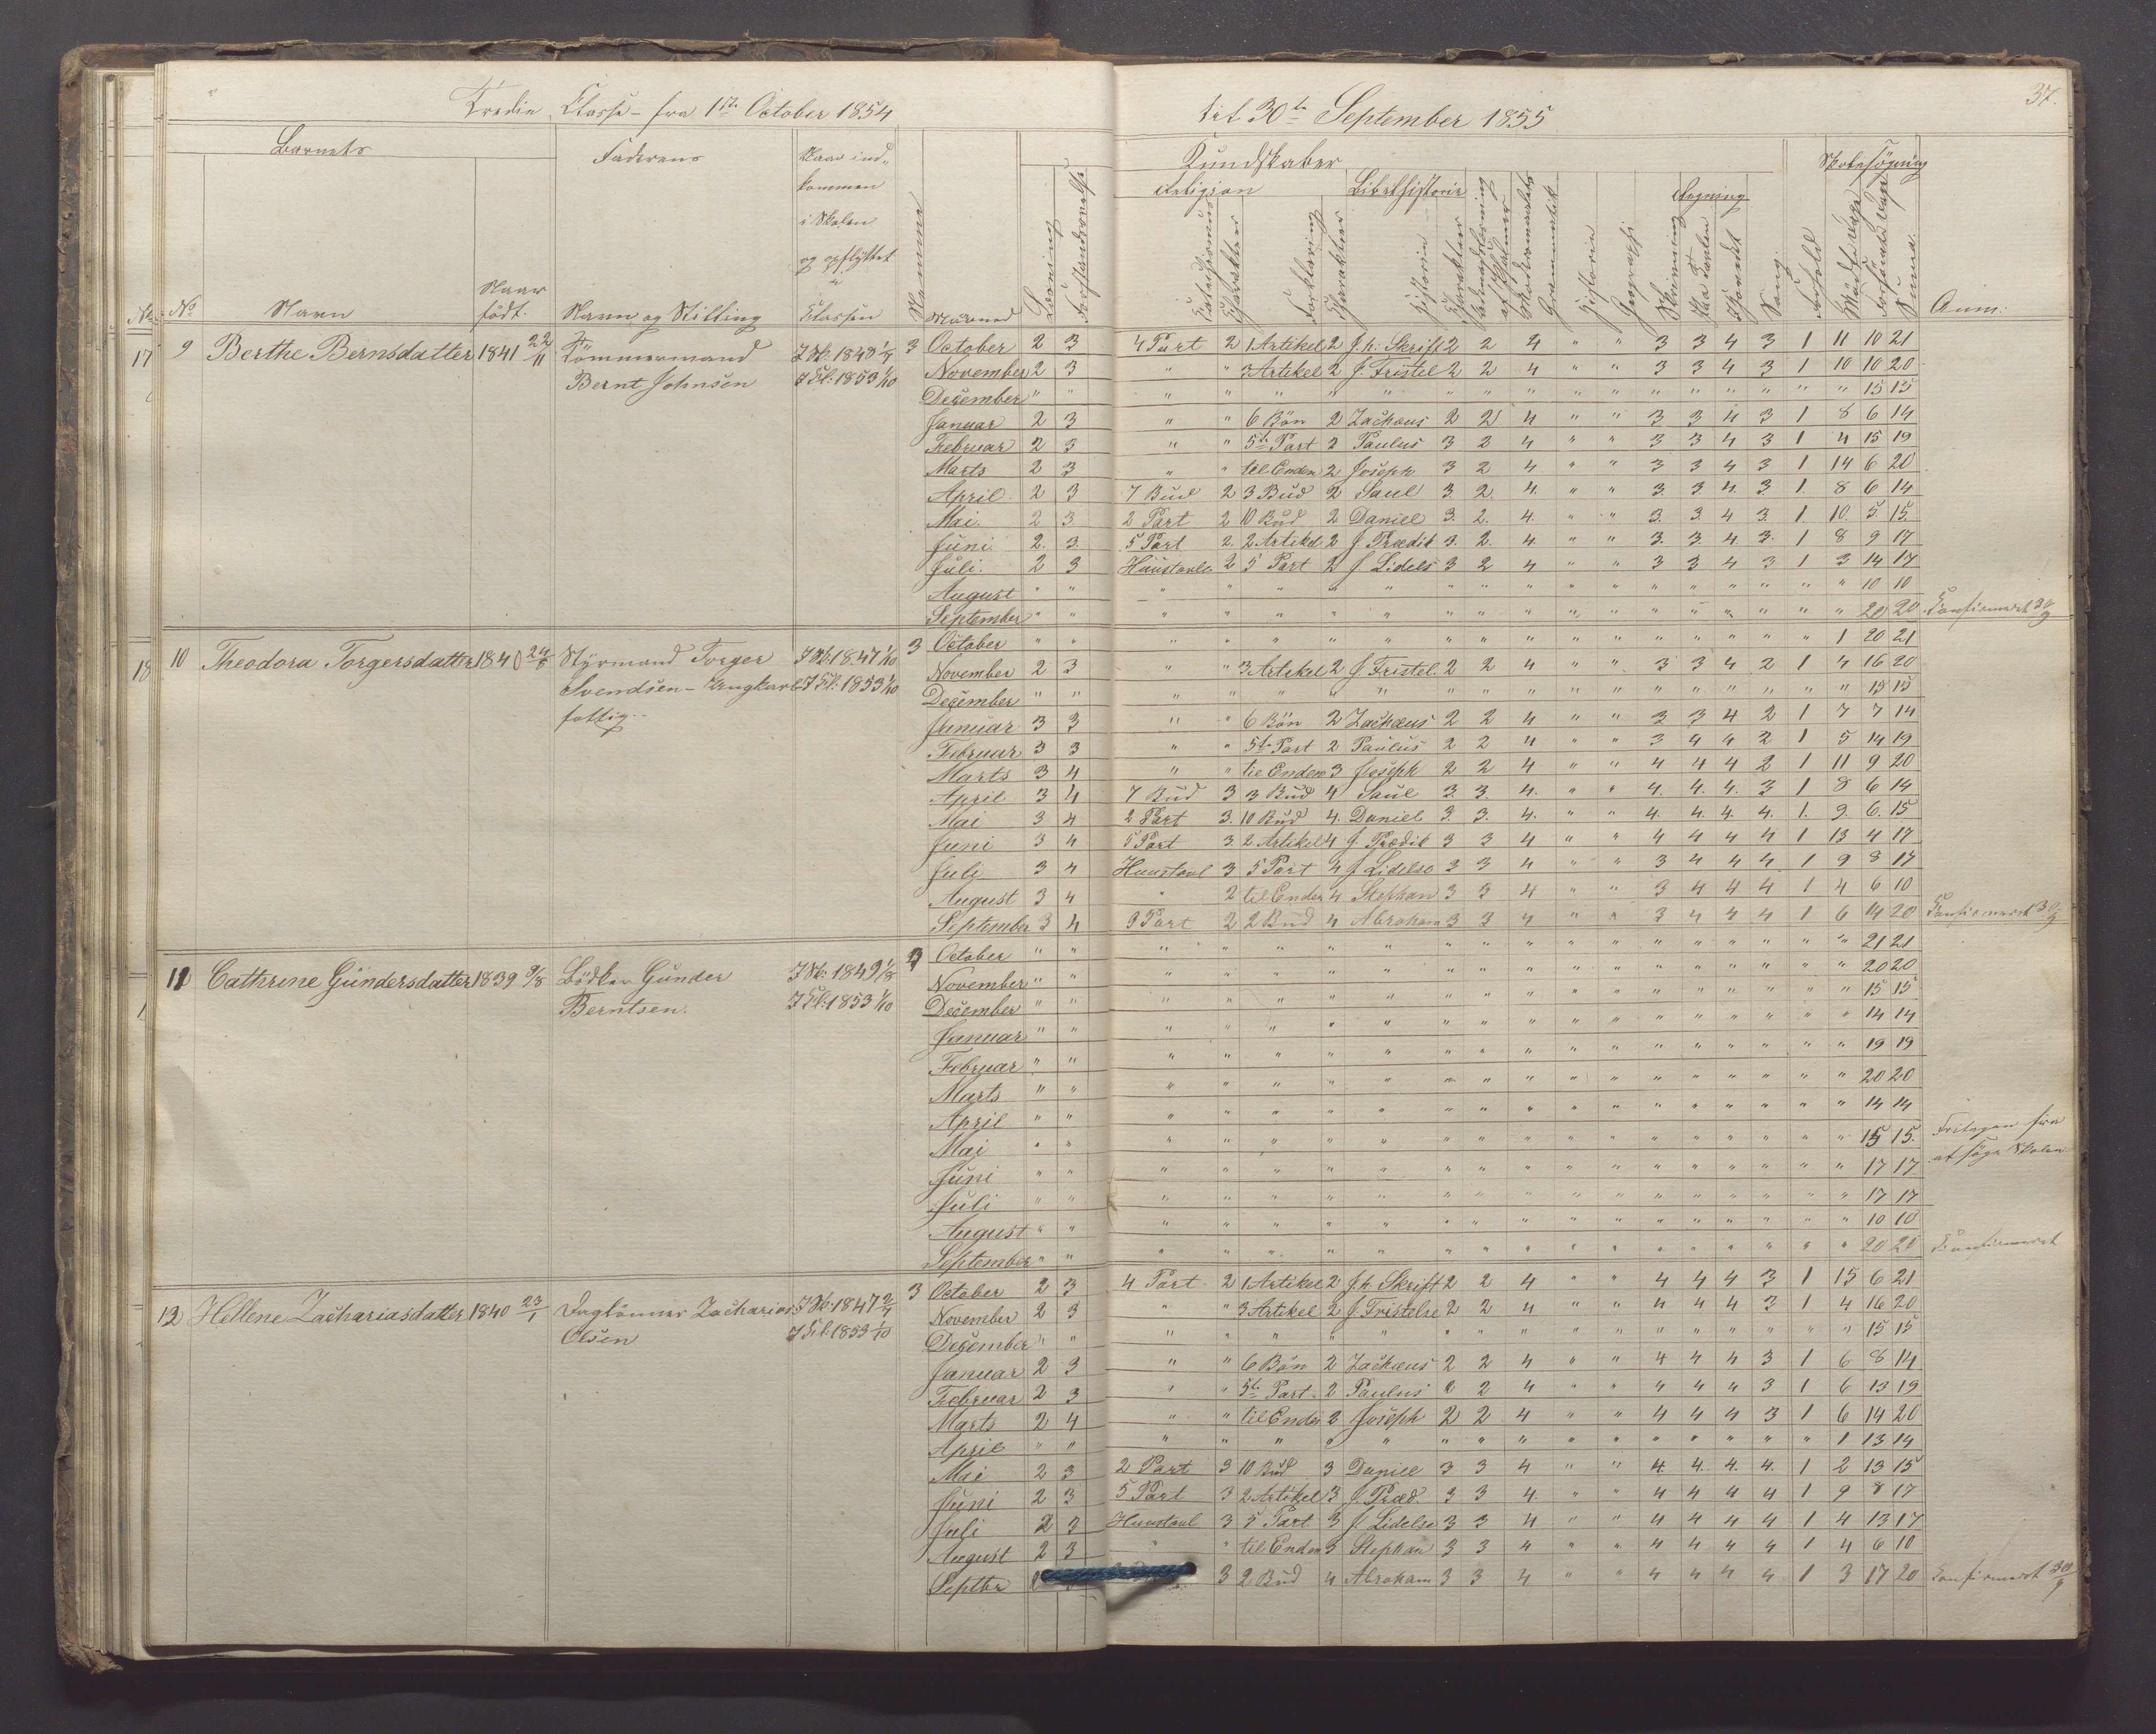 Tredie Classe - fra 1ste October 1854 til 30te September 1855
37.
Barnets Faderens Naar ind- kommen i Skolen og opflyttet i Classen
Kundskaber Skolesøgning
Religion Bibelhistorie Regning
No Navn Naar født. Navn og Stilling Maaned Læsning Catechismus Charakteer Forklaring Charakteer Historie Charakteer Grammatik Historie Geographi Skrivning Sang. Forhold Mødte Dage Forsømte Dage Summa. Anm:
17 9 Berthe Bernsdatter 1841 22/11 Tømmermand Bernt Johnsen J Sk: 1848 J Cl: 1853 1/10 3
October 2 3 4 Part 2 1 Artikel 2 J. h: Skrift 2 2 4 " " 3 3 4 3 1 11 10 21
November 2 3 " " 3 Artikel 2 J. Fristel 2 2 4 " " 3 3 4 3 1 10 10 20
December " " " " " " " " " " " " " " " " " " 15 15
Januar 2 3 " " 6 Bön 2 Zachæus 2 2 4 " " 3 3 4 3 1 8 6 14
Februar 2 3 " " 5te Part 2 Paulus 3 2 4 " " 3 3 4 3 1 4 15 19
Marts 2 3 " " til Enden 2 Joseph 3 2 4 " " 3 3 4 3 1 14 6 20
April 2 3 7 Bud 2 3 Bud 2 Saul 3. 2. 4. " " 3. 3 4. 3. 1. 8 6 14
Mai. 2 3. 2 Part 2 10 Bud 2 Daniel 3. 2. 4. " " 3. 3. 4 3. 1. 10. 5. 15.
Juni 2. 3. 5 Part 2. 2 Artikel 2 J. Prædik 3. 2. 4. " " 3. 3. 4 3. 1 8 9 17
Juli. 2 3 Huustavle 2 5 Part 2 J Lidels 3 2 4 " " 3 3 4 3 1 3 14 17
August " " " " " " " " " " " " " " " " " " 10 10
September " " " " " " " " " " " " " " " " " " 20 20 Konfirmeret 30/9
18 10 Theodora Torgersdatter 1840 Styrmand Torger Svendsen - fattig.. J Sk: 1847 1/10 J Cl: 1853 1/10 3
October " " " " " " " " " " " " " " " " " 1 20 21
November 2 3 " " 3 Artikel 2 J. Fristel. 2 2 4 " " 3 3 4 2 1 4 16 20
December " " " " " " " " " " " " " " " " " " 15 15
Januar 3 3 " " 6 Bön 2 Zachæus 2 2 4 " " 3 3 4 2 1 7 7 14
Februar 3 3 " " 5te Part 2 Paulus 2 2 4 " " 3 4 4 2 1 5 14 19
Marts 3 4 " " til Enden 3 Joseph 2 2 4 " " 4 4 4 2 1 11 9 20
April 3 4 7 Bud 3 3 Bud 4 Saul 3. 3. 4. " " 4. 4. 4. 3 1 8 6 14
Mai 3 4 2 Part 3. 10 Bud 4. Daniel 3. 3. 4. " " 4. 4. 4. 4. 1. 9. 6. 15
Juni 3 4 5 Part 3. 2 Artikel 4 J. Prædik 3 3 4 " " 4 4 4 4 1 13 4 17
Juli 3 4 Huustavl 3 5 Part 4 J Lidelse 3 3 4 " " 3 4 4 4 1 9 8 17
August 3 4 " 2 til Enden 4 Stephan 3 3 4 " " 3 4 4 4 1 4 6 10
September 3 4 3 Part 2 2 Bud 4 Abraham 3 3 4 " " 3 4 4 4 1 6 14 20 Konfirmeret 30/9
11 Cathrine Gundersdatter 1839 9/8 Bödker Gunder Berntsen. J Sk: 1849 1/8 J Cl: 1853 1/10 3
October " " " " " " " " " " " " " " " " " " 21 21
November " " " " " " " " " " " " " " " " " " 20 20
December " " " " " " " " " " " " " " " " " " 15 15
Januar " " " " " " " " " " " " " " " " " " 14 14
Februar " " " " " " " " " " " " " " " " " " 19 19
Marts " " " " " " " " " " " " " " " " " " 20 20
April " " " " " " " " " " " " " " " " " " 14 14
Mai " " " " " " " " " " " " " " " " " " 15 15. Fritagen fra
Juni " " " " " " " " " " " " " " " " " " 17 17 at søge Skolen
Juli " " " " " " " " " " " " " " " " " " 17 17
August " " " " " " " " " " " " " " " " " " 10 10
September " " " " " " " " " " " " " " " " " " 20 20 Konfirmeret
12 Hellene Zachariasdatter 1840 23/1 Daglönner Zacharias Olsen J Sk: 1847 2/7 J Cl: 1853 1/10 3
October 2 3 4 Part 2 1 Artikel 2 J. h. Skrift 2 2 4 " " 4 4 4 3 1 15 6 21
November 2 3 " " 3 Artikel 2 J. Fristelse 2 2 4 " " 4 4 4 3 1 4 16 20
December " " " " " " " " " " " " " " " " " " 15 15
Januar 2 3 " " 6 Bön 2 Zachæus 2 2 4 " " 4 4 4 3 1 6 8 14
Februar 2 3 " " 5te Part. 2 Paulus 2 2 4 " " 4 4 4 3 1 6 13 19
Marts 2 4 " " til Enden 2 Joseph 2 2 4 " " 4 4 4 3 1 6 14 20
April " " " " " " " " " " " " " " " " " 1 13 14
Mai 2 3 2 Part 3 10 Bud 3 Daniel 3 3 4 " " 4. 4. 4. 4. 1 2 13 15
Juni 2 3 5 Part 3 2 Artikel 3 J. Præd. 3 3 4. " " 4 4 4 4 1 9 8 17
Juli 2 3 Huustavl 3 5 Part 3 J Lidelse 3 3 4 " " 4 4 4 4 1 4 13 17
August 2 3 " " til Enden 3 Stephan 3 3 4 " " 4 4 4 4 1 4 6 10
Septbr 3 2 Bud 4 Abraham 3 3 4 " " 4 4 4 4 1 3 17 20 Konfirmeret 30/9